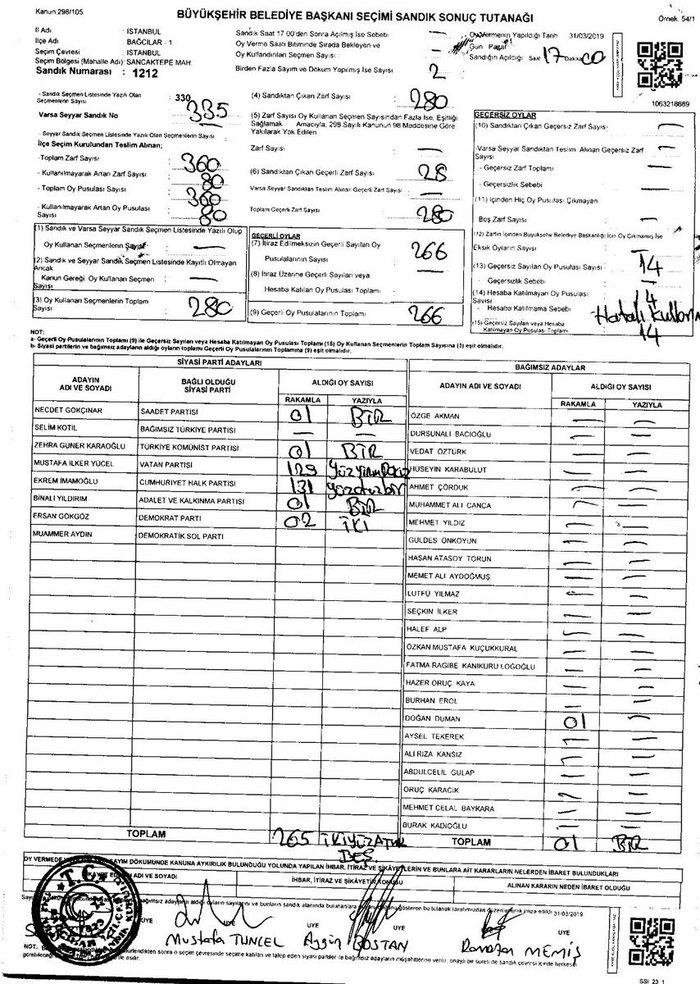 Kanun 298/105
BÜYÜKŞEHİR BELEDİYE BAŞKANI SEÇİMİ SANDIK SONUÇ TUTANAĞI
Örnek: 54/1
İl Adı : İSTANBUL
İlçe Adı : BAĞCILAR - 1
Seçim Çevresi : İSTANBUL
Seçim Bölgesi (Mahalle Adı): SANCAKTEPE MAH.
Sandık Numarası : 1212
Sandık Saat 17.00'den Sonra Açılmış İse Sebebi :
Oy Verme Saati Bitiminde Sırada Bekleyen ve
Oy Kullandırılan Seçmen Sayısı :
Birden Fazla Sayım ve Döküm Yapılmış İse Sayısı : 2
Oy Vermenin Yapıldığı Tarih : 31/03/2019
Gün : Pazar
Sandığın Açıldığı Saat 17 Dakika 00
1063218689
- Sandık Seçmen Listesinde Yazılı Olan Seçmenlerin Sayısı : 330 335
Varsa Seyyar Sandık No
- Seyyar Sandık Seçmen Listesinde Yazılı Olan Seçmenlerin Sayısı :
İlçe Seçim Kurulundan Teslim Alınan;
- Toplam Zarf Sayısı : 360
- Kullanılmayarak Artan Zarf Sayısı : 80
- Toplam Oy Pusulası Sayısı : 360
- Kullanılmayarak Artan Oy Pusulası Sayısı : 80
(1) Sandık ve Varsa Seyyar Sandık Seçmen Listesinde Yazılı Olup
Oy Kullanan Seçmenlerin Sayısı :
(2) Sandık ve Seyyar Sandık Seçmen Listesinde Kayıtlı Olmayan Ancak
Kanun Gereği Oy Kullanan Seçmen Sayısı :
(3) Oy Kullanan Seçmenlerin Toplam Sayısı : 280
(4) Sandıktan Çıkan Zarf Sayısı : 280
(5) Zarf Sayısı Oy Kullanan Seçmen Sayısından Fazla İse, Eşitliği
Sağlamak Amacıyla, 298 Sayılı Kanunun 98 Maddesine Göre
Yakılarak Yok Edilen
Zarf Sayısı : —
(6) Sandıktan Çıkan Geçerli Zarf Sayısı : 28
Varsa Seyyar Sandıktan Teslim Alınan Geçerli Zarf Sayısı : —
Toplam Geçerli Zarf Sayısı : 280
GEÇERLİ OYLAR
(7) İtiraz Edilmeksizin Geçerli Sayılan Oy
Pusulalarının Sayısı : 266
(8) İtiraz Üzerine Geçerli Sayılan veya
Hesaba Katılan Oy Pusulası Toplamı : —
(9) Geçerli Oy Pusulalarının Toplamı : 266
GEÇERSİZ OYLAR
(10) Sandıktan Çıkan Geçersiz Zarf Sayısı : —
-Varsa Seyyar Sandıktan Teslim Alınan Geçersiz Zarf Sayısı : —
- Geçersiz Zarf Toplamı : —
- Geçersizlik Sebebi : —
(11) İçinden Hiç Oy Pusulası Çıkmayan
Boş Zarf Sayısı : —
(12) Zarfın İçinden Büyükşehir Belediye Başkanlığı İçin Oy Çıkmamış İse
Eksik Oyların Sayısı : —
(13) Geçersiz Sayılan Oy Pusulası Sayısı : 14
Geçersizlik Sebebi :
(14) Hesaba Katılmayan Oy Pusulası Sayısı :
- Hesaba Katılmama Sebebi : Hatalı
(15) Geçersiz Sayılan veya Hesaba
Katılmayan Oy Pusulası Toplamı : 14
NOT:
a- Geçerli Oy Pusulalarının Toplamı (9) ile Geçersiz Sayılan veya Hesaba Katılmayan Oy Pusulası Toplamı (15) Oy Kullanan Seçmenlerin Toplam Sayısına (3) eşit olmalıdır.
b- Siyasi partilerin ve bağımsız adayların aldığı oyların toplamı Geçerli Oy Pusulalarının Toplamına (9) eşit olmalıdır.
SİYASİ PARTİ ADAYLARI
ADAYIN ADI VE SOYADI BAĞLI OLDUĞU SİYASİ PARTİ ALDIĞI OY SAYISI
RAKAMLA YAZIYLA
NECDET GÖKÇINAR SAADET PARTİSİ 01 BİR
SELİM KOTİL BAĞIMSIZ TÜRKİYE PARTİSİ — —
ZEHRA GÜNER KARAOĞLU TÜRKİYE KOMÜNİST PARTİSİ 01 BİR
MUSTAFA İLKER YÜCEL VATAN PARTİSİ 129
EKREM İMAMOĞLU CUMHURİYET HALK PARTİSİ 131 yüzotuzbir
BİNALİ YILDIRIM ADALET VE KALKINMA PARTİSİ 01 BİR
ERSAN GÖKGÖZ DEMOKRAT PARTİ 02 İKİ
MUAMMER AYDIN DEMOKRATİK SOL PARTİ
TOPLAM 265 İKİYÜZATMIŞ BEŞ
BAĞIMSIZ ADAYLAR
ADAYIN ADI VE SOYADI ALDIĞI OY SAYISI
RAKAMLA YAZIYLA
ÖZGE AKMAN — —
DURSUNALİ BACIOĞLU — —
VEDAT ÖZTÜRK — —
HÜSEYİN KARABULUT — —
AHMET ÇÖRDÜK — —
MUHAMMET ALİ CANCA — —
MEHMET YILDIZ —
GÜLDES ÖNKOYUN — —
HASAN ATASOY TORUN — —
MEMET ALİ AYDOĞMUŞ — —
LÜTFÜ YILMAZ — —
SEÇKİN İLKER — —
HALEF ALP — —
ÖZKAN MUSTAFA KÜÇÜKKURAL — —
FATMA RAGİBE KANIKURU LOĞOĞLU — —
HAZER ORUÇ KAYA — —
BURHAN EROL — —
DOĞAN DUMAN 01 —
AYSEL TEKEREK — —
ALİ RIZA KANSIZ — —
ABDULCELİL GULAP — —
ORUÇ KARACIK — —
MEHMET CELAL BAYKARA — —
BURAK KADIOĞLU — —
TOPLAM 01 BİR
OY VERMEDE SAYIM DÖKÜMÜNDE KANUNA AYKIRILIK BULUNDUĞU YOLUNDA YAPILAN İHBAR, İTİRAZ VE ŞİKÂYETLERİN VE BUNLARA AİT KARARLARIN NELERDEN İBARET BULUNDUKLARI
ADI VE SOYADI İHBAR, İTİRAZ VE ŞİKÂYETİN KONUSU ALINAN KARARIN NEDEN İBARET OLDUĞU
31/03/2019
ÜYE ÜYE ÜYE ÜYE
Mustafa TUNCEL
Ayşin BOSTAN
Ramazan MEMİŞ
T.C.
SSI_23_1